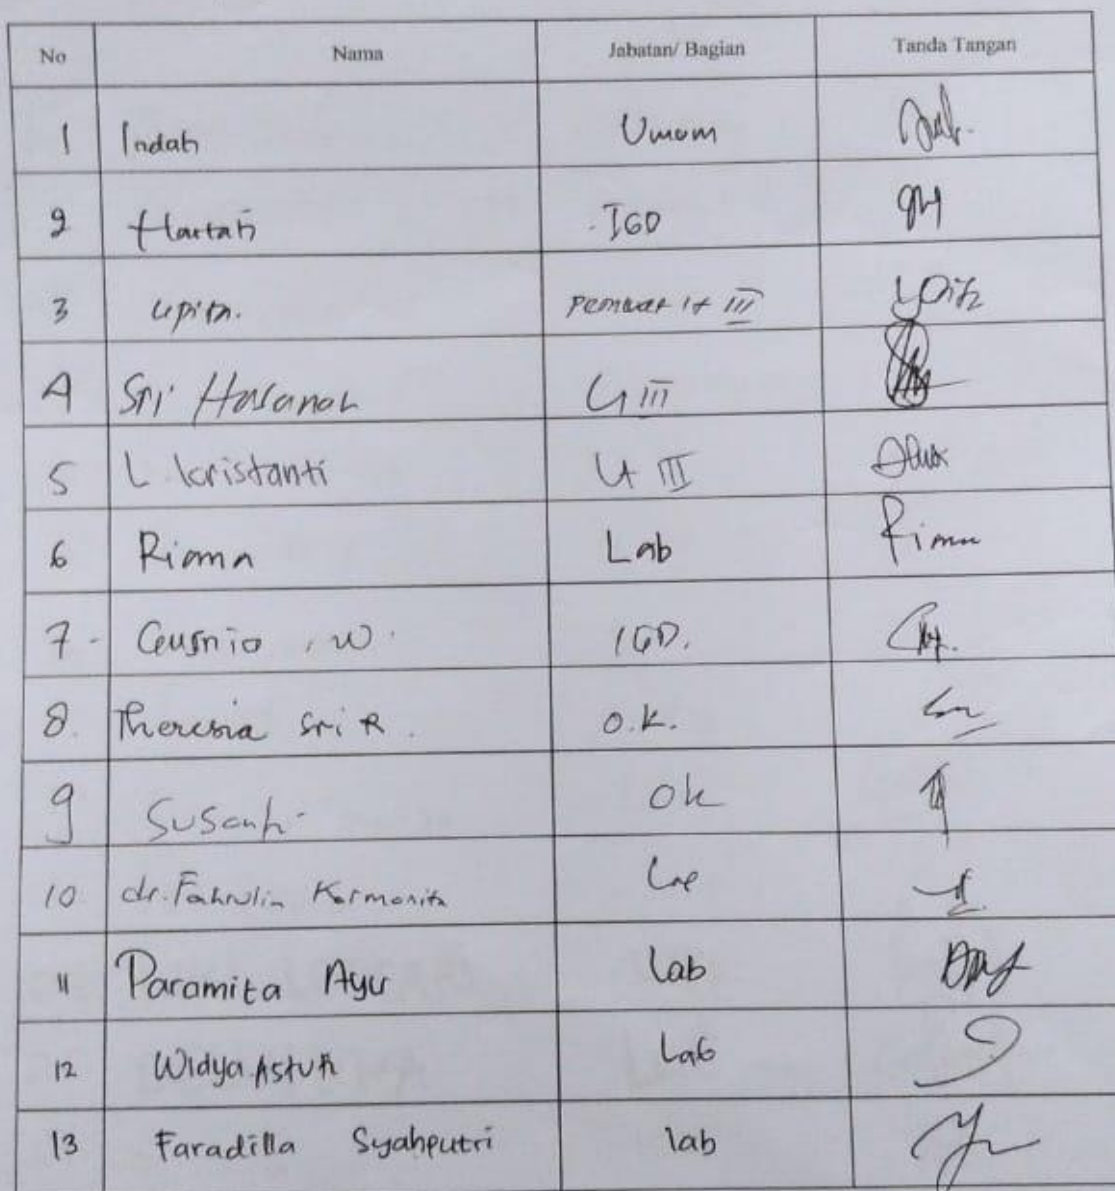 No Nama Jabatan/ Bagian Tanda Tangan
1 Indah Umum
2 Hartati IGD
3 upita. perawat lt III
4 Sri Hasanah Lt III
5 L kristanti Lt III
6 Riama Lab Riama
7. W. IGD.
8. Theresia Sri R. O.K.
9 Susanti OK
10 dr. Fahrulin Karmanita
11 Paramita Ayu Lab
12 Widya Astuti Lab
13 Faradilla Syahputri lab